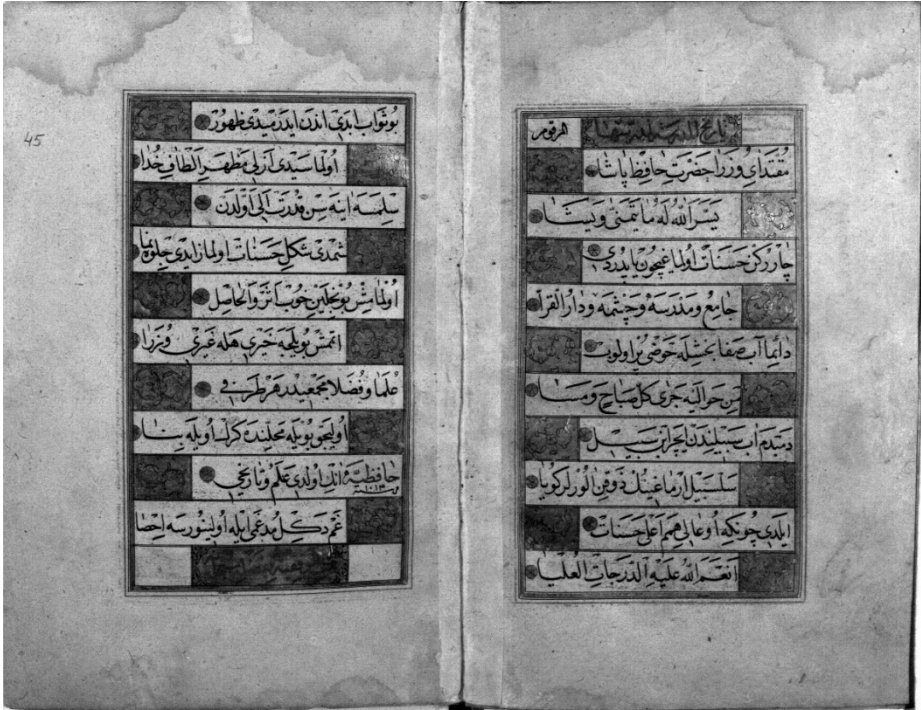 المرقوم
مقتداى وزرا حضرت حافظ پاشا
يسر الله له ما يتمنى ويشا
چار ركن حسنات اولماغيچون ياپدردى
جامع ومدرسه وچشمه ودار القرا
دائما آب صفا بخشله حوضى پر اولوب
من حواليه جرى كل صباح ومسا
دمبدم آب سبيلندن ايچر ابن سبيل
سلسبيل ارماغينك ذوقن الورلر كويا
ايلدى چونكه او عالى همم اعلى حسنات
انعم الله عليه الدرجات العليا
45
بو ثواب ابدى اندن ايدرميدى ظهور
اولماسيدى ازلى مظهر الطاف خدا
سلمسه اينه سن قدرت الى اولدن
شمدى شكل حسنات اولماز ايدى جلوه نما
اولمامش بونجلين خوب اثر والحاصل
اتمش بويلجه خيرى هله غيرى وزرا
علما وفضلا مجمعيدر هر طرفى
اوليجق بويله محلنده كرك اويله بنا
حافظيه انك اولدى علم وتاريخى
سنه ١٠١٣
غم دكل مدغمى ايله اولينورسه احصا